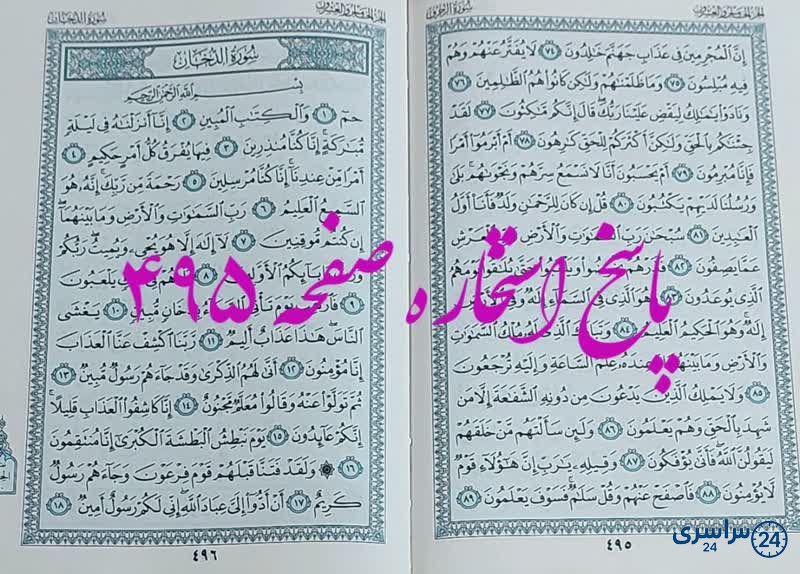 الجزء الخامس والعشرون
سورة الزخرف
إِنَّ الْمُجْرِمِينَ فِي عَذَابِ جَهَنَّمَ خَالِدُونَ ٧٤ لَا يُفَتَّرُ عَنْهُمْ وَهُمْ
فِيهِ مُبْلِسُونَ ٧٥ وَمَا ظَلَمْنَاهُمْ وَلَٰكِن كَانُوا هُمُ الظَّالِمِينَ ٧٦
وَنَادَوْا يَا مَالِكُ لِيَقْضِ عَلَيْنَا رَبُّكَ قَالَ إِنَّكُم مَّاكِثُونَ ٧٧ لَقَدْ
جِئْنَاكُم بِالْحَقِّ وَلَٰكِنَّ أَكْثَرَكُمْ لِلْحَقِّ كَارِهُونَ ٧٨ أَمْ أَبْرَمُوا أَمْرًا
فَإِنَّا مُبْرِمُونَ ٧٩ أَمْ يَحْسَبُونَ أَنَّا لَا نَسْمَعُ سِرَّهُمْ وَنَجْوَاهُم بَلَىٰ
وَرُسُلُنَا لَدَيْهِمْ يَكْتُبُونَ ٨٠ قُلْ إِن كَانَ لِلرَّحْمَٰنِ وَلَدٌ فَأَنَا أَوَّلُ
الْعَابِدِينَ ٨١ سُبْحَانَ رَبِّ السَّمَاوَاتِ وَالْأَرْضِ الْعَرْشِ
عَمَّا يَصِفُونَ ٨٢ فَذَرْهُمْ يَخُوضُوا حَتَّىٰ يُلَاقُوا يَوْمَهُمُ
الَّذِي يُوعَدُونَ ٨٣ وَهُوَ الَّذِي فِي السَّمَاءِ إِلَٰهٌ وَفِي الْأَرْضِ
إِلَٰهٌ وَهُوَ الْحَكِيمُ الْعَلِيمُ ٨٤ وَتَبَارَكَ الَّذِي لَهُ مُلْكُ السَّمَاوَاتِ
وَالْأَرْضِ وَمَا بَيْنَهُمَا وَعِندَهُ عِلْمُ السَّاعَةِ وَإِلَيْهِ تُرْجَعُونَ
٨٥ وَلَا يَمْلِكُ الَّذِينَ يَدْعُونَ مِن دُونِهِ الشَّفَاعَةَ إِلَّا مَن
شَهِدَ بِالْحَقِّ وَهُمْ يَعْلَمُونَ ٨٦ وَلَئِن سَأَلْتَهُم مَّنْ خَلَقَهُمْ
لَيَقُولُنَّ اللَّهُ فَأَنَّىٰ يُؤْفَكُونَ ٨٧ وَقِيلِهِ يَا رَبِّ إِنَّ هَٰؤُلَاءِ قَوْمٌ
لَّا يُؤْمِنُونَ ٨٨ فَاصْفَحْ عَنْهُمْ وَقُلْ سَلَامٌ فَسَوْفَ يَعْلَمُونَ ٨٩
٤٩٥
الجزء الخامس والعشرون
سورة الدخان
سورة الدخان
بِسْمِ اللَّهِ الرَّحْمَٰنِ الرَّحِيمِ
حم ١ وَالْكِتَابِ الْمُبِينِ ٢ إِنَّا أَنزَلْنَاهُ فِي لَيْلَةٍ
مُّبَارَكَةٍ إِنَّا كُنَّا مُنذِرِينَ ٣ فِيهَا يُفْرَقُ كُلُّ أَمْرٍ حَكِيمٍ ٤
أَمْرًا مِّنْ عِندِنَا إِنَّا كُنَّا مُرْسِلِينَ ٥ رَحْمَةً مِّن رَّبِّكَ إِنَّهُ هُوَ
السَّمِيعُ الْعَلِيمُ ٦ رَبِّ السَّمَاوَاتِ وَالْأَرْضِ وَمَا بَيْنَهُمَا
إِن كُنتُم مُّوقِنِينَ ٧ لَا إِلَٰهَ إِلَّا هُوَ يُحْيِي وَيُمِيتُ رَبُّكُمْ
وَرَبُّ آبَائِكُمُ الْأَوَّلِينَ ٨ بَلْ هُمْ فِي شَكٍّ يَلْعَبُونَ
٩ فَارْتَقِبْ يَوْمَ تَأْتِي السَّمَاءُ بِدُخَانٍ مُّبِينٍ ١٠ يَغْشَى
النَّاسَ هَٰذَا عَذَابٌ أَلِيمٌ ١١ رَّبَّنَا اكْشِفْ عَنَّا الْعَذَابَ
إِنَّا مُؤْمِنُونَ ١٢ أَنَّىٰ لَهُمُ الذِّكْرَىٰ وَقَدْ جَاءَهُمْ رَسُولٌ مُّبِينٌ ١٣
ثُمَّ تَوَلَّوْا عَنْهُ وَقَالُوا مُعَلَّمٌ مَّجْنُونٌ ١٤ إِنَّا كَاشِفُوا الْعَذَابِ قَلِيلًا
إِنَّكُمْ عَائِدُونَ ١٥ يَوْمَ نَبْطِشُ الْبَطْشَةَ الْكُبْرَىٰ إِنَّا مُنتَقِمُونَ
١٦ وَلَقَدْ فَتَنَّا قَبْلَهُمْ قَوْمَ فِرْعَوْنَ وَجَاءَهُمْ رَسُولٌ
كَرِيمٌ ١٧ أَنْ أَدُّوا إِلَيَّ عِبَادَ اللَّهِ إِنِّي لَكُمْ رَسُولٌ أَمِينٌ ١٨
٤٩٦
پاسخ استخاره صفحه ۴۹۵
سراسری 24
24